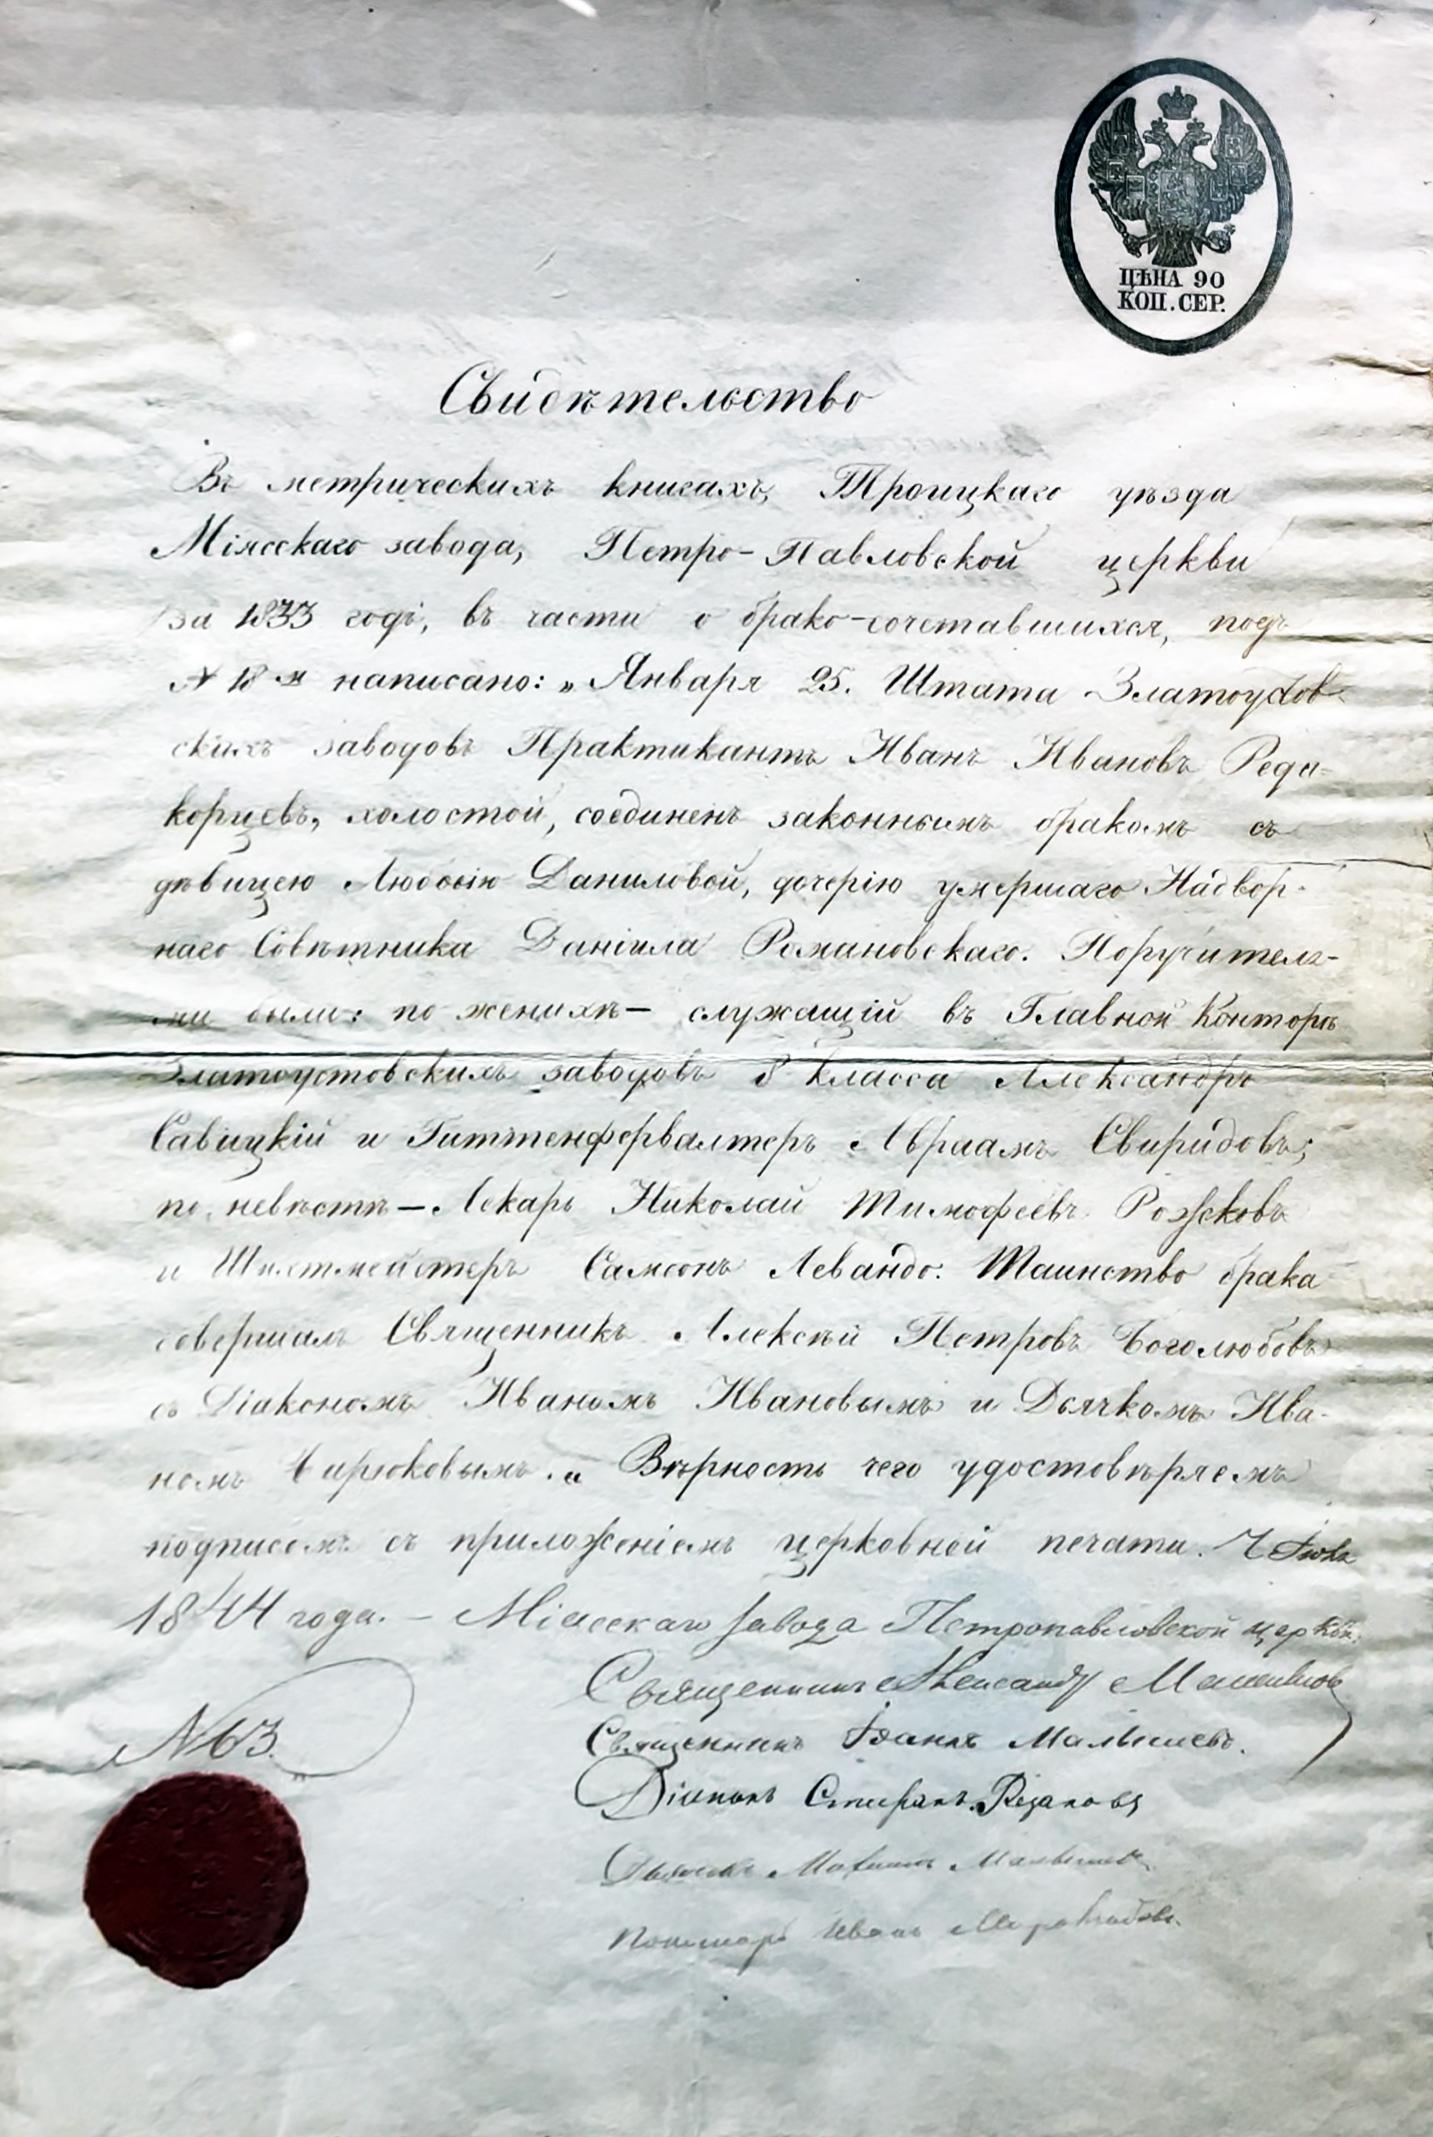 ЦѢНА 90
КОП. СЕР.
Свидѣтельство
Въ метрическихъ книгахъ, Троицкаго уѣзда
Міясскаго завода, Петро-Павловской церкви
за 1833 годъ, въ части о брако-сочетавшихся, подъ
№ 18 м написано: „Января 25. Штата Златоустов-
скихъ заводовъ Практикантъ Иванъ Ивановъ Реди-
корцевъ, холостой, соединенъ законнымъ бракомъ съ
дѣвицею Любовію Даниловой, дочерію умершаго Надвор-
наго Совѣтника Даніила Романовскаго. Поручителя-
ми были: по женихѣ — служащій въ Главной Конторѣ
Златоустовскихъ заводовъ 8 класса Александръ
Савицкій и Гиттенфервалтеръ Авраамъ Свиридовъ;
по невѣстѣ — Лекарь Николай Тимофеевъ Рожковъ
и Шихтмейстеръ Самсонъ Левандо. Таинство брака
совершалъ Священникъ Алексѣй Петровъ Боголюбовъ
съ Діакономъ Иваномъ Ивановымъ и Дьячкомъ Ива-
номъ Бирюковымъ.„ Вѣрность чего удостовѣряемъ
подписомъ съ приложеніемъ церковной печати.
1844 года. — Міасскаго завода Петропавловской церкви
Священникъ Александръ
Священникъ Іоаннъ Малышевъ.
Діаконъ Стефанъ Рязановъ
Дьячекъ Малышевъ
Пономарь Иванъ
№ 63.